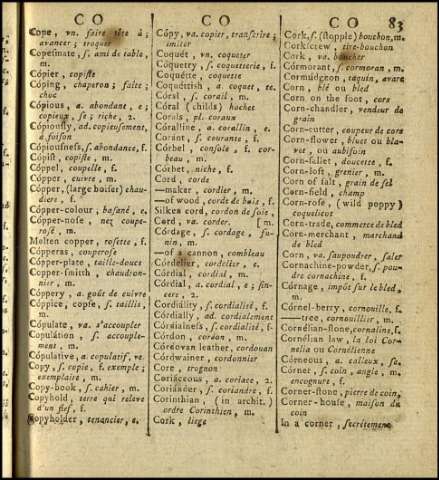 CO
CO
CO
83
Cope, vn. faire tête à;
avancer; troquer
Copesmate, ſ. ami de table,
m.
Cópier, copiſte
Cóping, chaperon; faîte;
choc
Cópious, a. abondant, e;
copieux, ſe; riche, 2.
Cópiouſly, ad. copieuſement,
à foiſon
Cópiouſneſs, ſ. abondance, f.
Cópiſt, copiſte, m.
Cóppel, coupelle, f.
Cópper, cuivre, m.
Cópper, (large boiler) chau-
diere, f.
Cópper-colour, baſané, e.
Cópper-noſe, nez coupe-
roſé, m.
Molten copper, roſette, f.
Cópperas, couproſe
Cópper-plate, taille-douce
Cópper-ſmith, chaudron-
nier, m.
Cóppery, a. goût de cuivre
Cóppice, copſe, ſ. taillis;
m.
Cópulate, va. s'accoupler
Copulátion, ſ. accouple-
ment, m.
Cópulative, a. copulatif, ve.
Copy, ſ. copie, f. exemple;
exemplaire, m.
Copy-book, ſ. cahier, m.
Copyhold, terre qui releve
d'un fief, f.
Copyholder, tenancier, e.
Cópy, va. copier, tranſcrire;
imiter
Coquét, vn. coqueter
Coquetry, ſ. coquetterie, f.
Coquétte, coquette
Coquéttiſh, a. coquet, te.
Córal, ſ. corail, m.
Córal (childs) hochet
Corals, pl. coraux
Córalline, a. corallin, e.
Coránt, ſ. courante, f.
Córbel, conſole, f. cor-
beau, m.
Córbet, niche, f.
Cord, corde
—maker, cordier, m.
—of wood, corde de bois, f.
Silken cord, cordon de ſoie
Cord, va. corder, [m.
Córdage, ſ. cordage, fu-
nin, m.
—of a cannon, combleau
Córdelier, cordelier, e.
Córdial, cordial, m.
Córdial, a. cordial, e; ſin-
cere, 2.
Cordiálity, ſ. cordialité, f.
Córdially, ad. cordialement
Córdialneſs, ſ. cordialité, f.
Córdon, cordon, m.
Córdovan leather, cordouan
Córdwainer, cordonnier
Core, trognon
Coriáceous, a. coriace, 2.
Coriánder, ſ. coriandre, f.
Corínthian (in archit.)
ordre Corinthien, m.
Cork, liege
Cork, ſ. (ſtopple) bouchon, m.
Corkſcrew, tire-bouchon
Cork, va. boucher
Córmorant, ſ. cormoran, m.
Cormúdgeon, taquin, avare
Corn, blé ou bled
Corn on the foot, cors
Corn-chandler, vendeur de
grain
Corn-cutter, coupeur de cors
Corn-flower, bluet ou bla-
vet, ou aubifoin
Corn-ſallet, doucette, f.
Corn-loft, grenier, m.
Corn of ſalt, grain de ſel
Corn-field, champ
Corn-roſe, (wild poppy)
coquelicot
Corn-trade, commerce de bled
Corn-merchant, marchand
de bled
Corn, va. ſaupoudrer, ſaler
Cornachine-powder, ſ. pou-
dre cornachine, f.
Córnage, impôt ſur le bled,
m.
Córnel-berry, cornouille, f.
—tree, cornouillier, m.
Cornélian-ſtone, cornaline, f.
Cornélian law, la loi Cor-
nelia ou Cornélienne
Córneous, a. calleux, ſe.
Córner, ſ. coin, angle, m.
encognure, f.
Córner-ſtone, pierre de coin,
Corner-houſe, maiſon du
coin
In a corner, ſecrétement